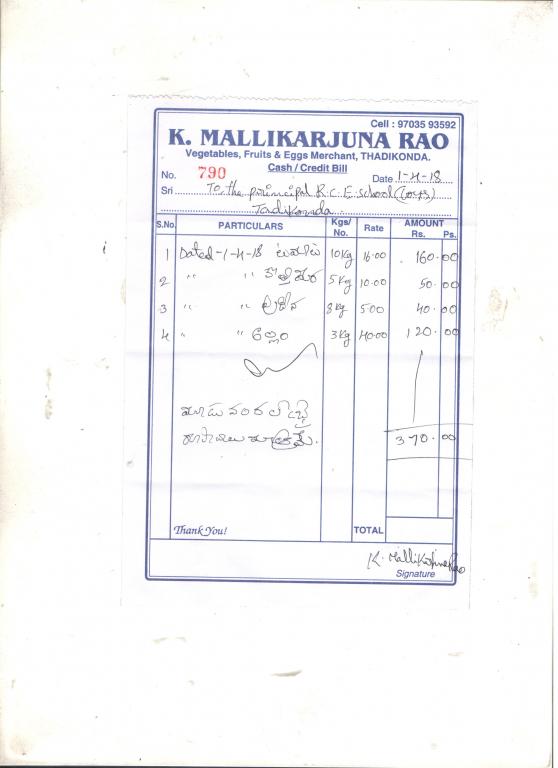 Cell : 97035 93592
K. MALLIKARJUNA RAO
Vegetables, Fruits & Eggs Merchant, THADIKONDA.
Cash / Credit Bill
No. 790 Date 1-4-18
Sri To the principal R.C.E. School (Boys)
Tadikonda
S.No. PARTICULARS Kgs/ No. Rate AMOUNT Rs. Ps.
1 Dated-1-4-18 టమాటు 10Kg 16.00 160.00
2 " " కొత్తిమీర 5Kg 10.00 50.00
3 " " పుదీన 8Kg 5.00 40.00
4 " " అల్లం 3Kg 40.00 120.00
మూడు వందల డెబ్బై
రూపాయలు మాత్రమే. 370.00
Thank You! TOTAL
K. Mallikarjuna Rao
Signature